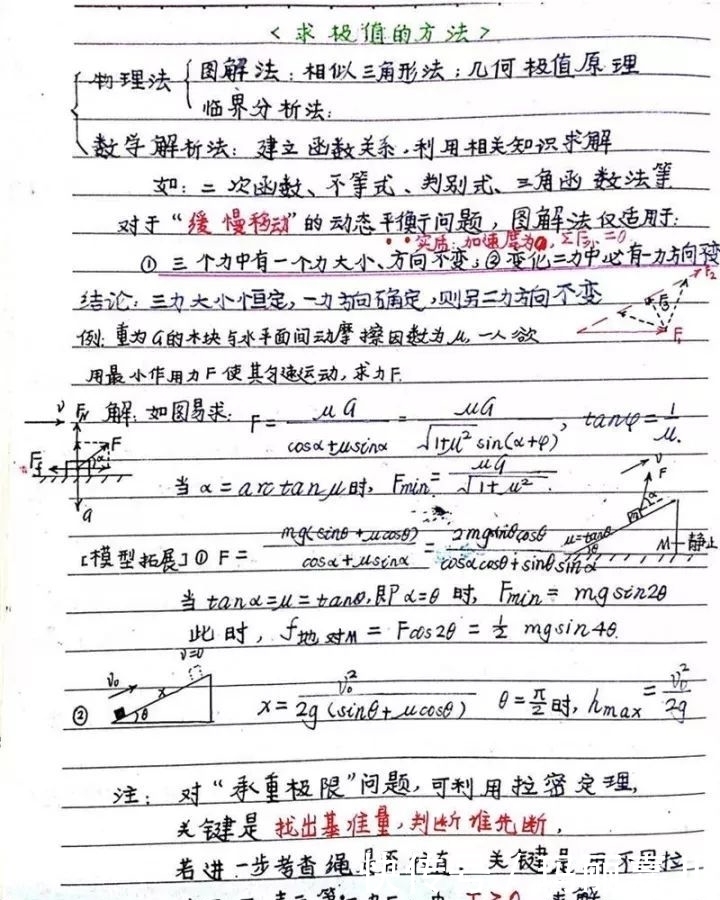 <求极值的方法>
物理法 图解法:相似三角形法;几何极值原理
临界分析法:
数学解析法:建立函数关系,利用相关知识求解
如:二次函数、不等式、判别式、三角函数法等
对于“缓慢移动”的动态平衡问题,图解法仅适用于:
实质:加速度为0,ΣF外=0
① 三个力中有一个力大小、方向不变;②变化二力中必有一力方向不变
结论:三力大小恒定,一力方向确定,则另二力方向不变
F₂
F₃
F₁
例:重为G的木块与水平面间动摩擦因数为μ,一人欲
用最小作用力F使其匀速运动,求力F.
v FN F Ff α G
解:如图易求:F=μG/(cosα+μsinα)=μG/(√(1+μ²) sin(α+φ)), tanφ=1/μ.
当α=arctanμ时,Fmin=μG/√(1+μ²).
v F α m μ=tanθ θ M 静止
[模型拓展]① F=mg(sinθ+μcosθ)/(cosα+μsinα)=2mgsinθcosθ/(cosαcosθ+sinθsinα)
当tanα=μ=tanθ,即α=θ时,Fmin=mgsin2θ
此时,f地对M=Fcos2θ=½mgsin4θ.
② v₀ x v=0 θ
x=v₀²/(2g(sinθ+μcosθ)) θ=π/2时,hmax=v₀²/2g
注:对“承重极限”问题,可利用拉密定理,
关键是找出基准量,判断谁先断,
若进一步考查绳
关键是